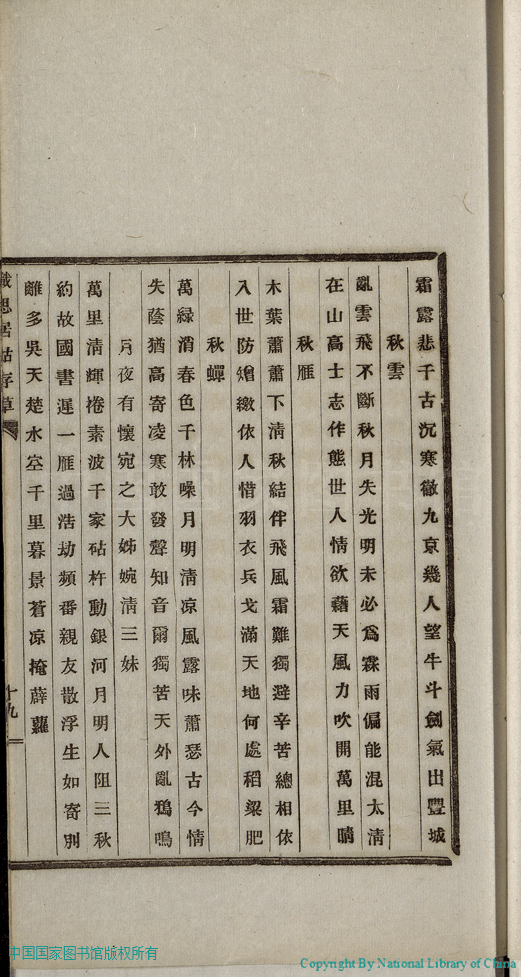 霜露悲千古沉寒徹九京幾人望牛斗劍氣出豐城
秋雲
亂雲飛不斷秋月失光明未必爲霖雨偏能混太清
在山高士志作態世人情欲藉天風力吹開萬里晴
秋雁
木葉蕭蕭下清秋結伴飛風霜難獨避辛苦總相依
入世防矰繳依人惜羽衣兵戈滿天地何處稻粱肥
秋蟬
萬緑消春色千林噪月明淸凉風露味蕭瑟古今情
失蔭猶高寄凌寒敢發聲知音爾獨苦天外亂鴉鳴
月夜有懷宛之大姊婉淸三妹
萬里淸輝捲素波千家砧杵動銀河月明人阻三秋
約故國書遲一雁過浩劫頻番親友散浮生如寄別
離多吳天楚水空千里暮景蒼凉掩薜蘿
思居
存草
十九
中国国家图书馆版权所有
Copyright By National Library of China